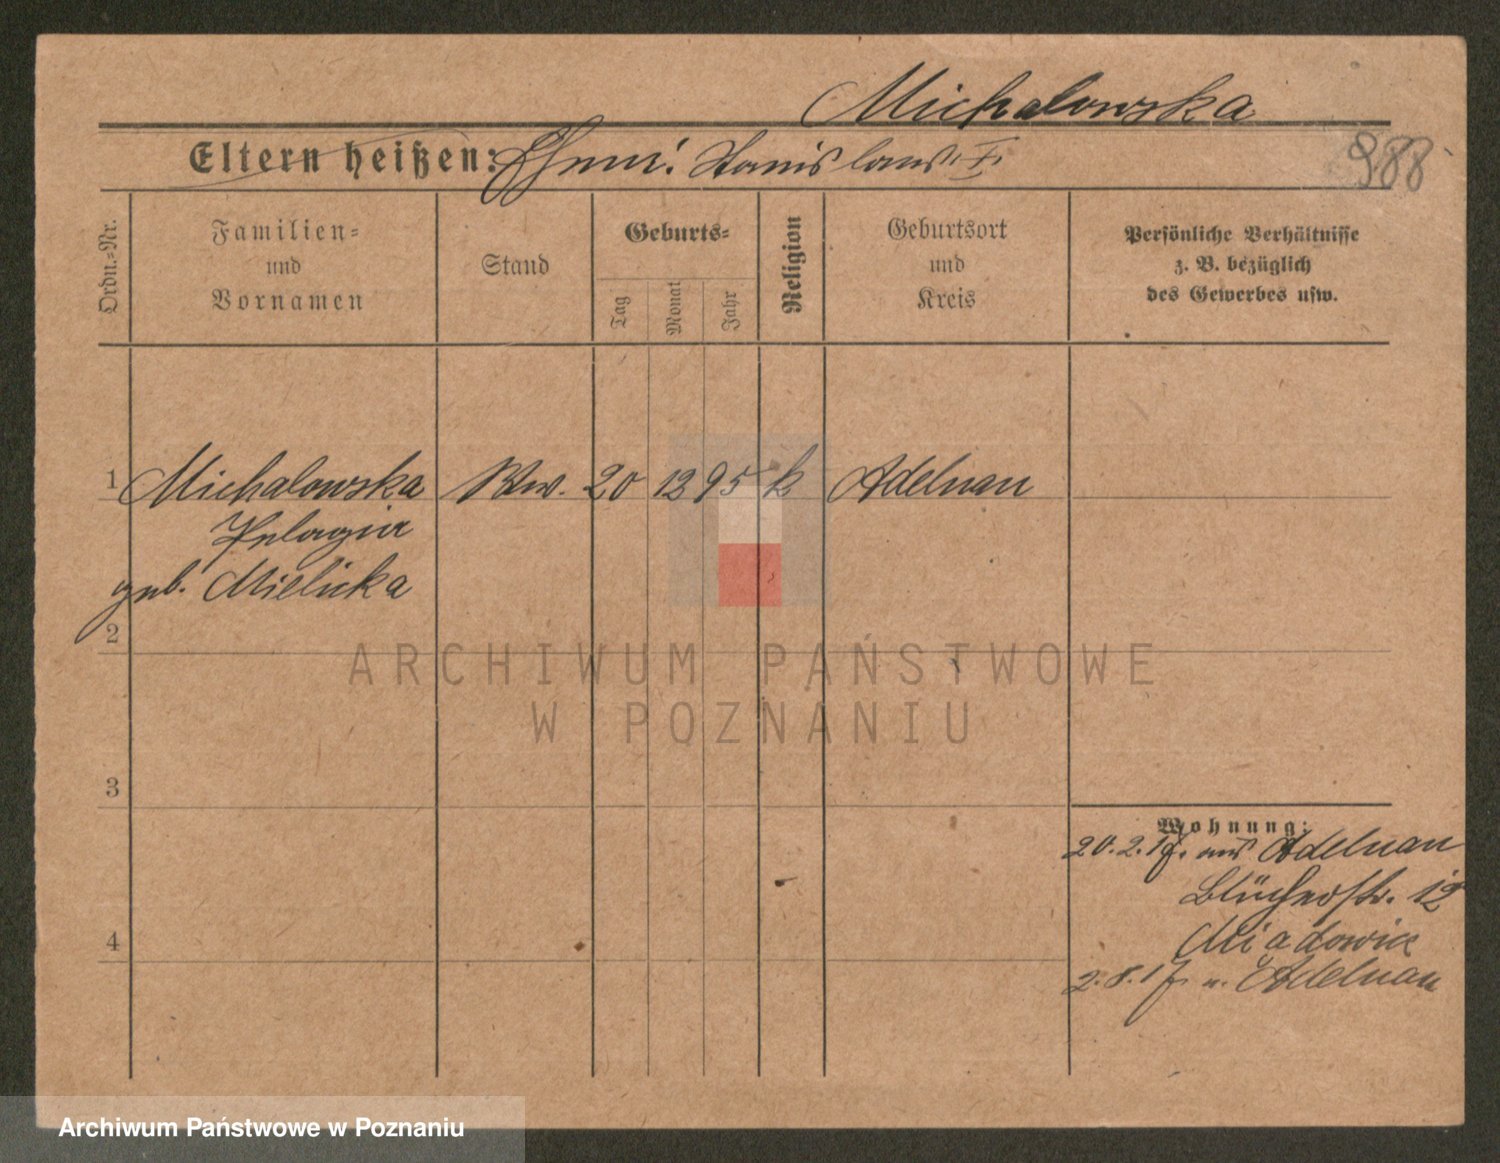 Michalowska
988
Eltern heißen: Ehem: Stanislaus
Ordn.-Nr.
Familien- und Vornamen
Stand
Geburts-
Tag
Monat
Jahr
Religion
Geburtsort und Kreis
Persönliche Verhältnisse
z. B. bezüglich
des Gewerbes usw.
1 Michalowska Ww. 20 12 95 k Adelnau
Pelagia
geb. Mielicka
2
3
4
Wohnung:
20.2.17. aus Adelnau
Blücherstr. 12
2.8.17 n. Adelnau
ARCHIWUM PAŃSTWOWE
W POZNANIU
Archiwum Państwowe w Poznaniu